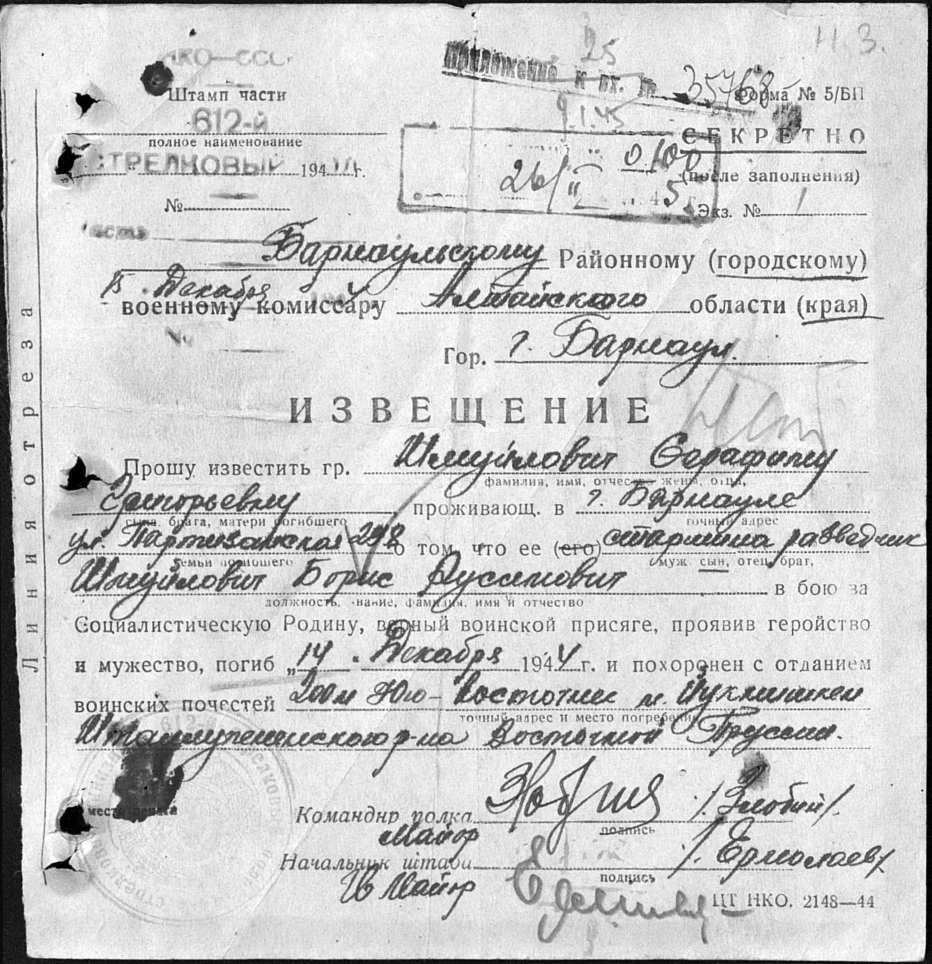 НКО—СССР
25
Н. З.
Приложение к вх. №
35768
Форма № 5/БП
Штамп части
9.1.45
612-й
СЕКРЕТНО
полное наименование
0100
СТРЕЛКОВЫЙ 1944 г.
(после заполнения)
26/II 45
№
Экз. № 1
Барнаульскому Районному (городскому)
15 Декабря
военному комиссару Алтайского области (края)
№
Гор. г. Барнаул.
ИЗВЕЩЕНИЕ
Прошу известить гр. Шмуйлович Серафиму
фамилия, имя, отчество жена, отца,
Григорьевну проживающ. в г. Барнауле
сына, брата, матери погибшего
точный адрес
ул. Партизанская 298 о том, что ее (его) старшина разведчик
семьи погибшего
муж, сын, отец, брат,
Шмуйлович Борис в бою за
должность, звание, фамилия, имя и отчество
Социалистическую Родину, верный воинской присяге, проявив геройство
и мужество, погиб „14 . Декабря 1944 г. и похоронен с отданием
воинских почестей 200м Юго-Восточнее
точный адрес и место погребения
р-на Восточной Пруссии.
место печати
Командир полка /Злобин/.
подпись
Майор
Начальник штаба /Ермолаев/
подпись
Майор
ЦТ НКО. 2148—44
Линия отреза